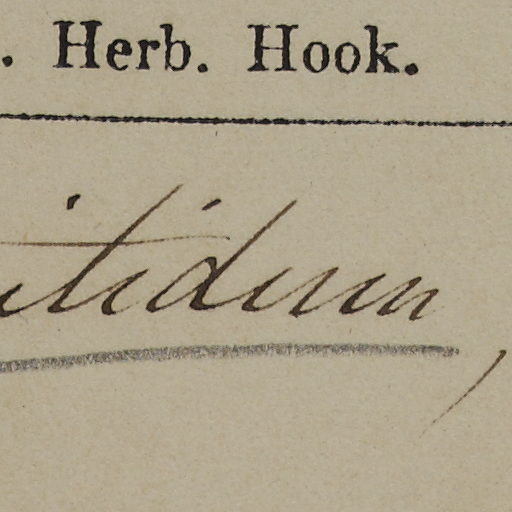 . Herb. Hook.
itidum,